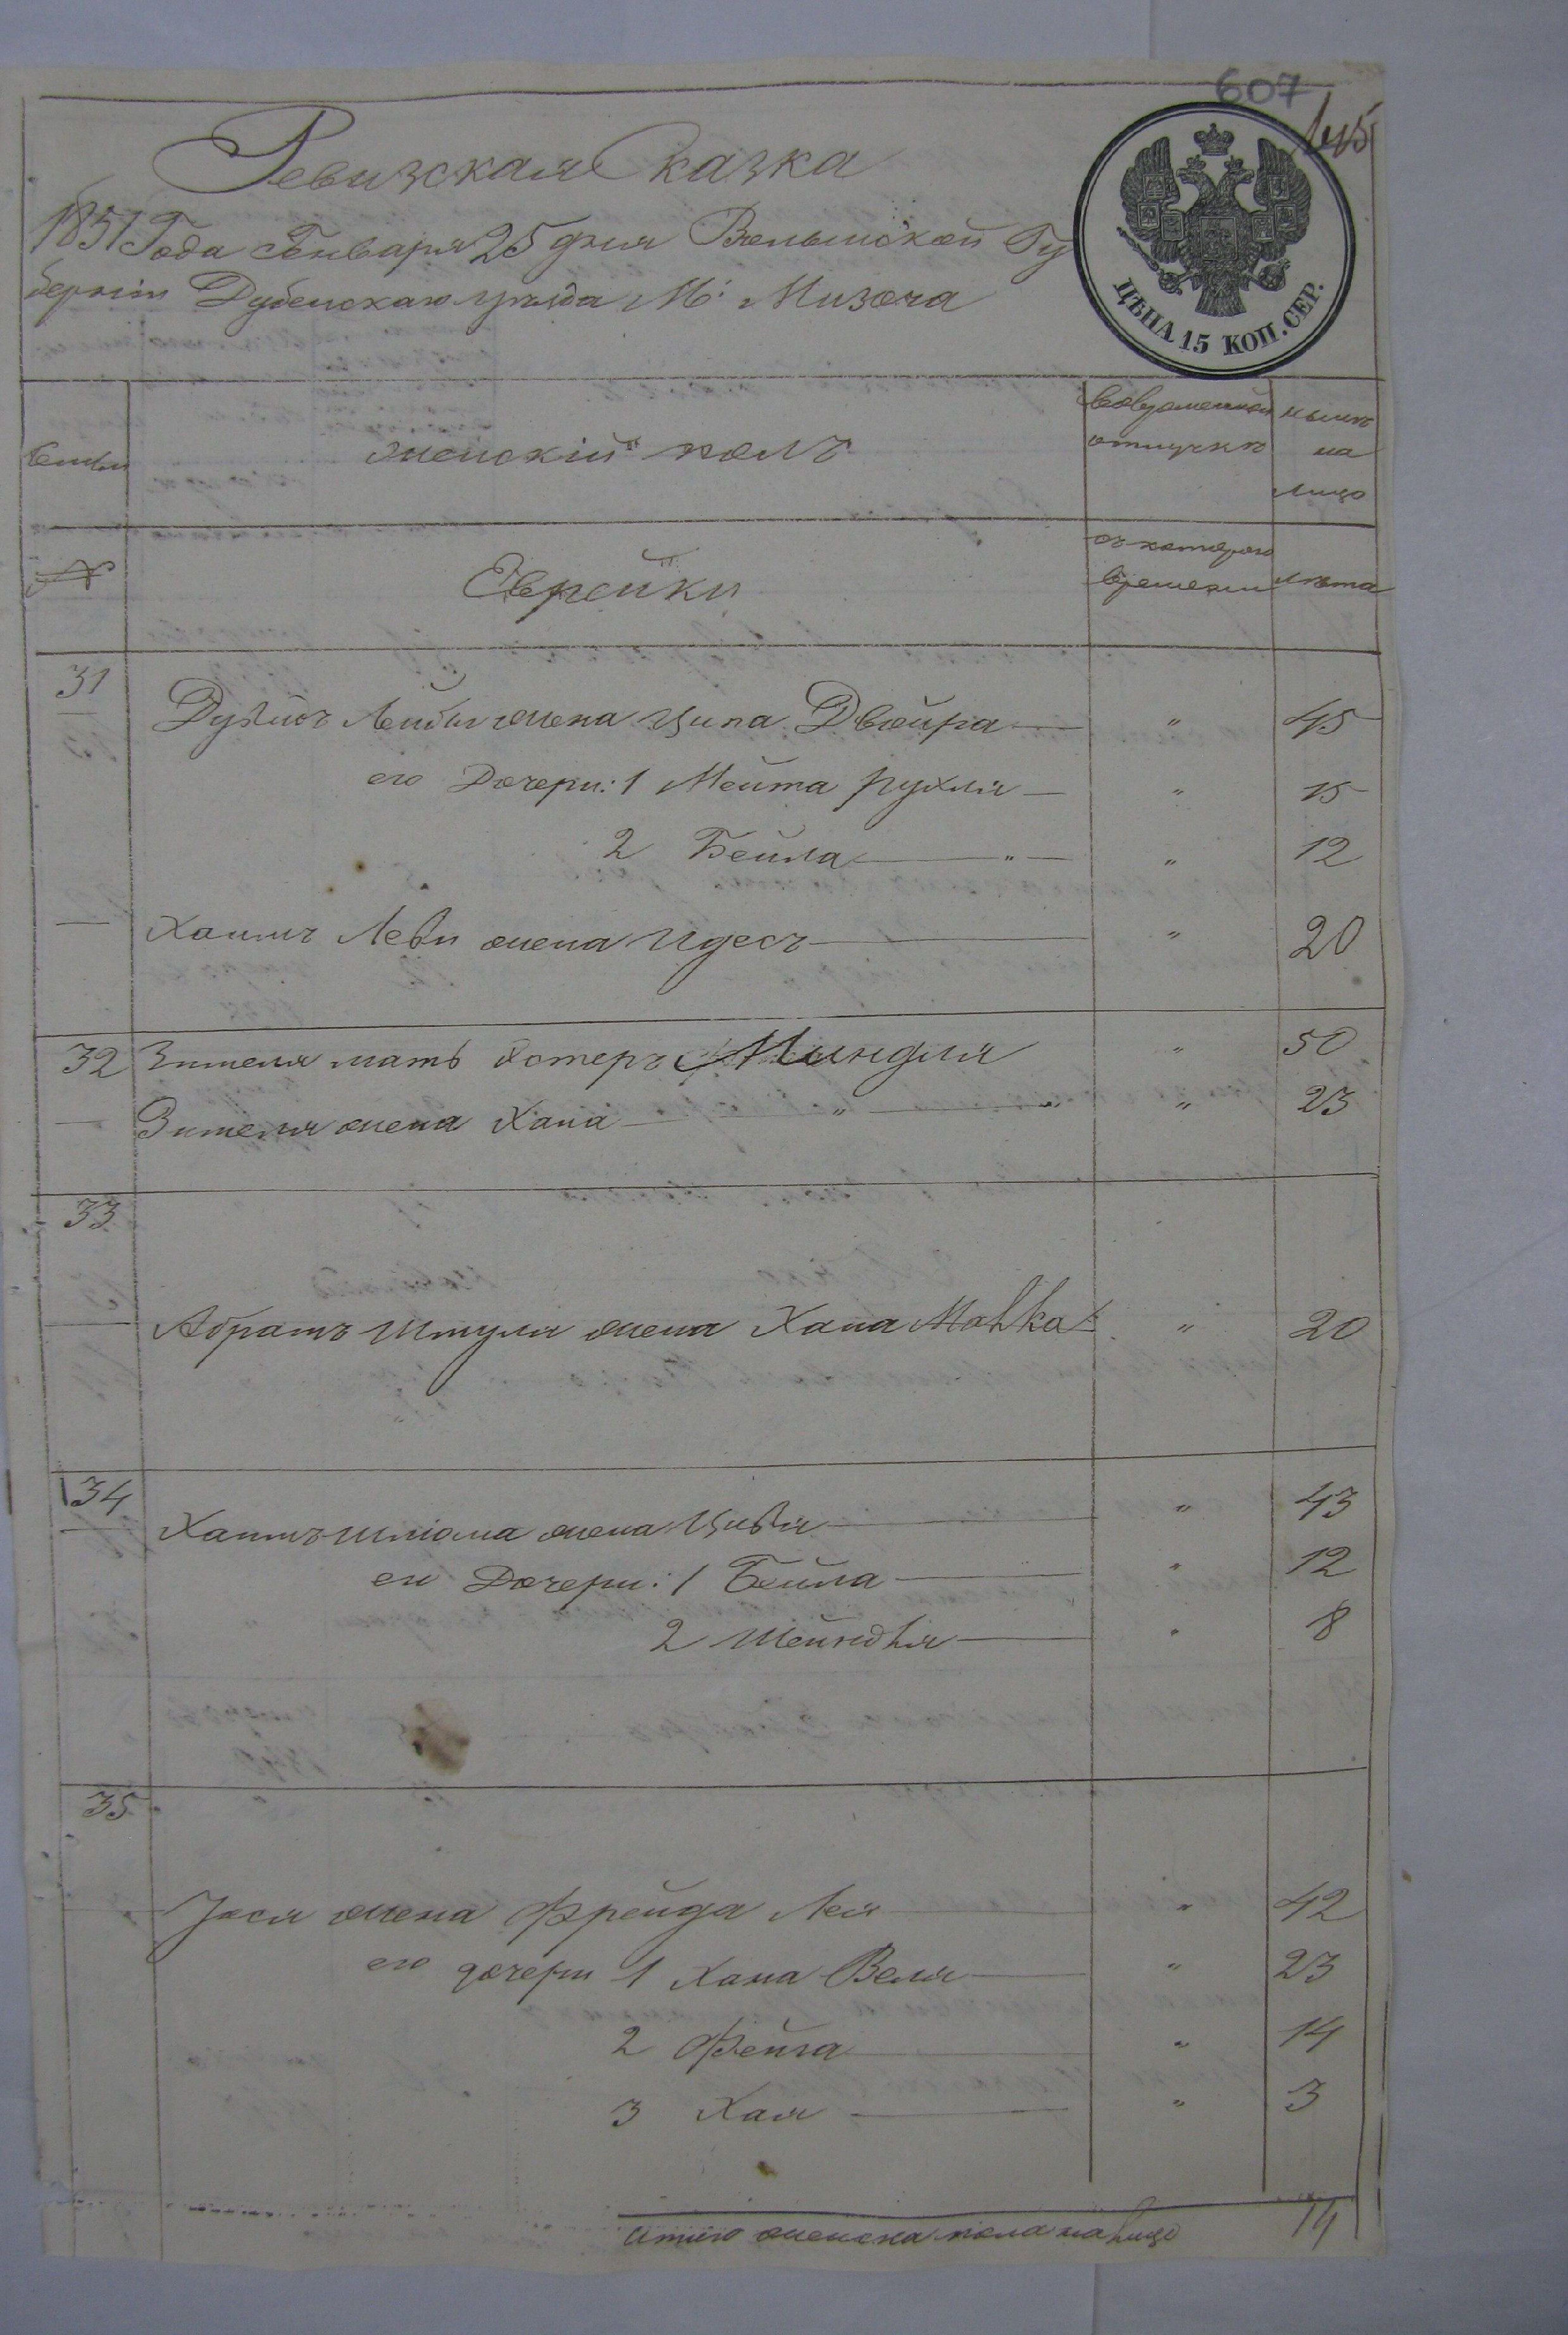 607
Ревизская Сказка
1851 Года Генваря 25 дня Волынской Гу
берніи Дубенскаго уѣзда М: Мизоча
ЦѢНА 15 КОП. СЕР.
женскій полъ
Вовременной отлучкѣ
нынѣ на лицо
№
Еврейки
съ котораго времени
лѣта
31 Лейбы жена Ципа Двойра — " 45
его Дочери: 1 Мейта Рухля — " 15
2 Бейла — " — " 12
— Хаимъ Леви жена Идесъ — " 20
32 Зителя мать Эстеръ Миндля " 50
— Зителя жена Хана — " — " " 23
33
— Абрамъ Шмуля жена Хана Malka " 20
34 " 43
— Хаимъ Шліома жена Цивья —
ея Дочери: 1 Бейла — " 12
2 Шейндля — " 8
35
— Іося жена Фрейда Лея — " 42
его дочери 1 Хана Веля — " 23
2 Фейга — " 14
3 Хая — " 3
итого женска пола налицо 14